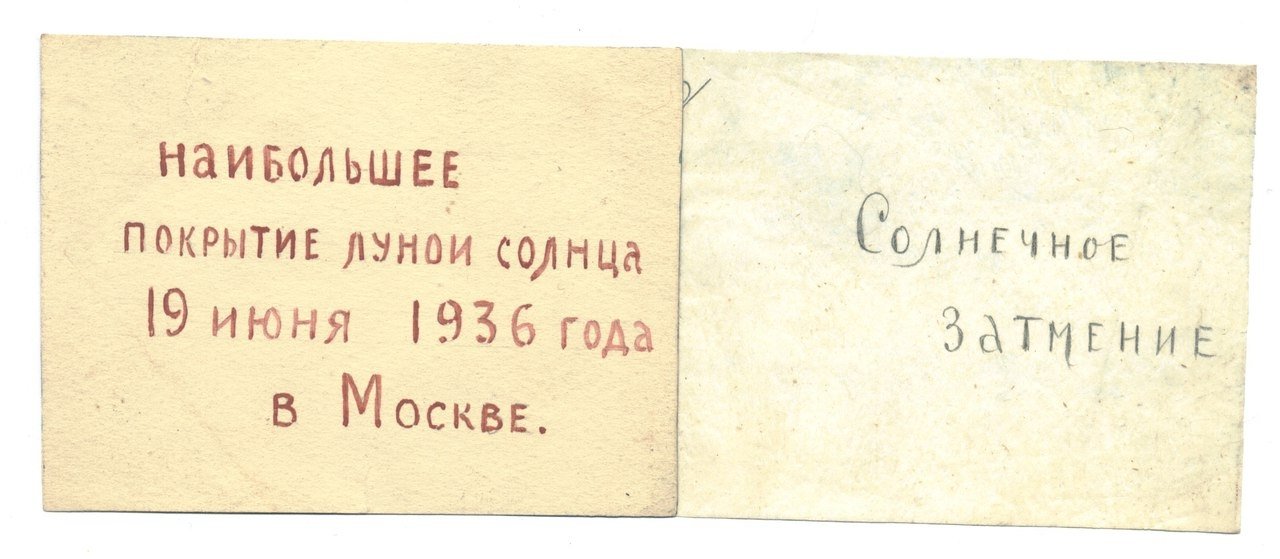 Наибольшее
покрытие луной солнца
19 июня 1936 года
в Москве.
Солнечное
затмение